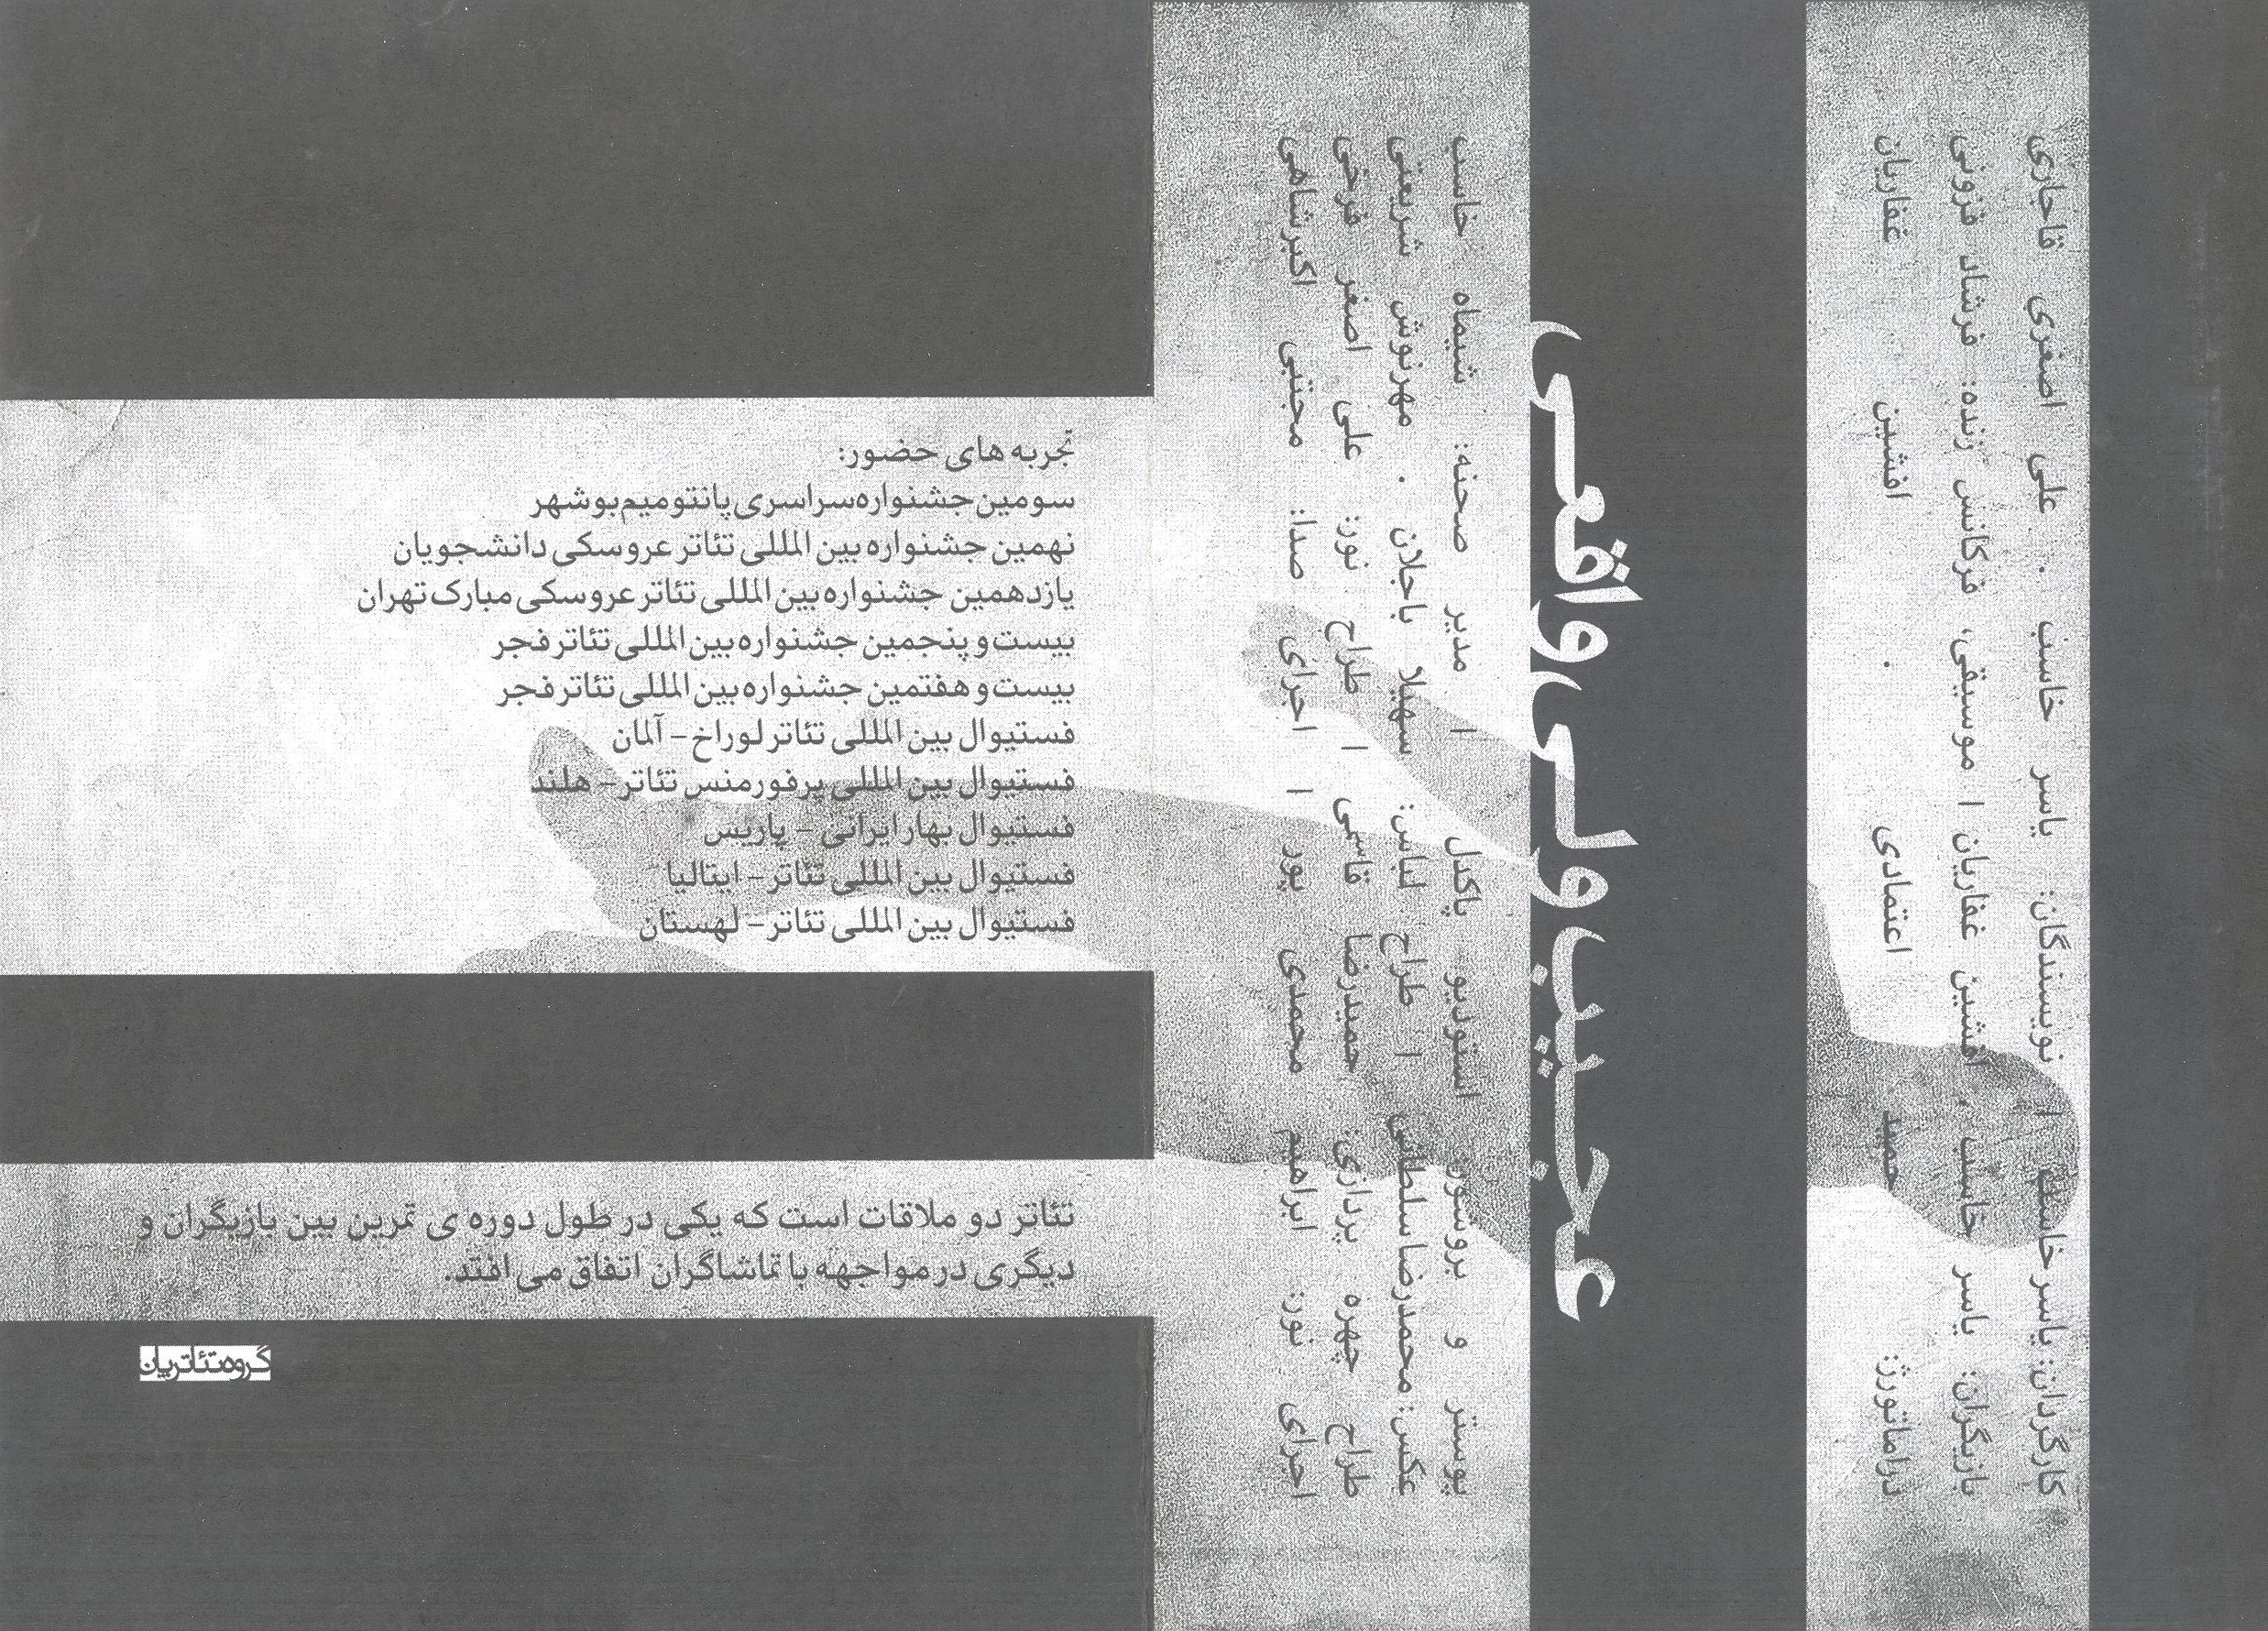 تجربه های حضور:
سومین جشنواره سراسری پانتومیم بوشهر
نهمین جشنواره بین المللی تئاتر عروسکی دانشجویان
یازدهمین جشنواره بین المللی تئاتر عروسکی مبارک تهران
بیست و پنجمین جشنواره بین المللی تئاتر فجر
بیست و هفتمین جشنواره بین المللی تئاتر فجر
فستیوال بین المللی تئاتر لوراخ - آلمان
فستیوال بین المللی پرفورمنس تئاتر - هلند
فستیوال بهار ایرانی - پاریس
فستیوال بین المللی تئاتر - ایتالیا
فستیوال بین المللی تئاتر - لهستان
تئاتر دو ملاقات است که یکی در طول دوره ی تمرین بین بازیگران و
دیگری در مواجهه با تماشاگران اتفاق می افتد.
گروه تئاتریان
کارگردان: یاسر خاسب | نویسندگان: یاسر خاسب . علی اصغری قاجاری
بازیگران: یاسر خاسب . افشین غفاریان | موسیقی، فرکانس زنده: فرشاد فزونی
دراماتورژ: حمید اعتمادی . افشین غفاریان
عجیب ولی واقعی
پوستر و بروشور: استودیو پاکدل | مدیر صحنه: شیماه خاسب
عکس: محمدرضا سلطانی | طراح لباس: سهیلا باجلان . مهرنوش شریعتی
طراح چهره پردازی: حمیدرضا قاسمی | طراح نور: علی اصغر فرخی
اجرای نور: ابراهیم محمدی پور | اجرای صدا: مجتبی اکبرشاهی